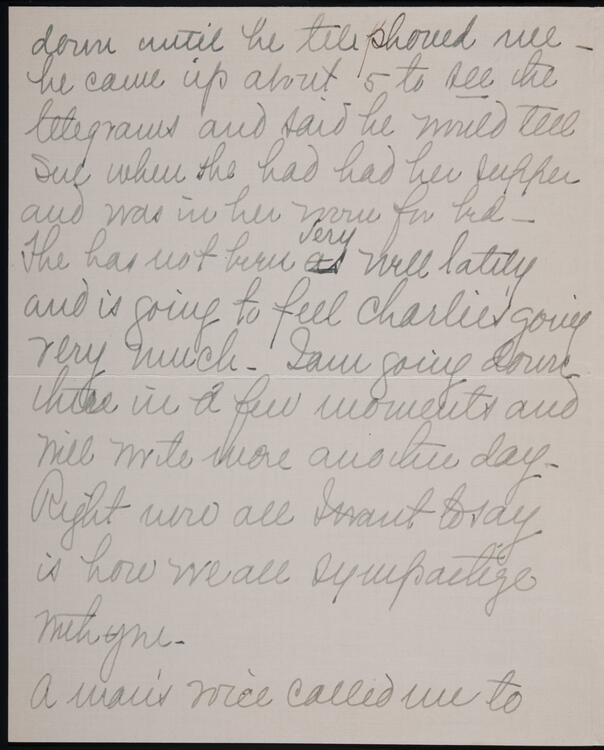 down until he telephoned me –
he came up about 5 to see the
telegrams and said he would tell
Sue when she had had her supper
and was in her room for bed –
She has not been as very well lately
and is going to feel Charlie's going
very much – I am going down
there in a few moments and
will write more another day –
Right now all I want to say
is how we all sympathize
with you –
A man's voice called me to